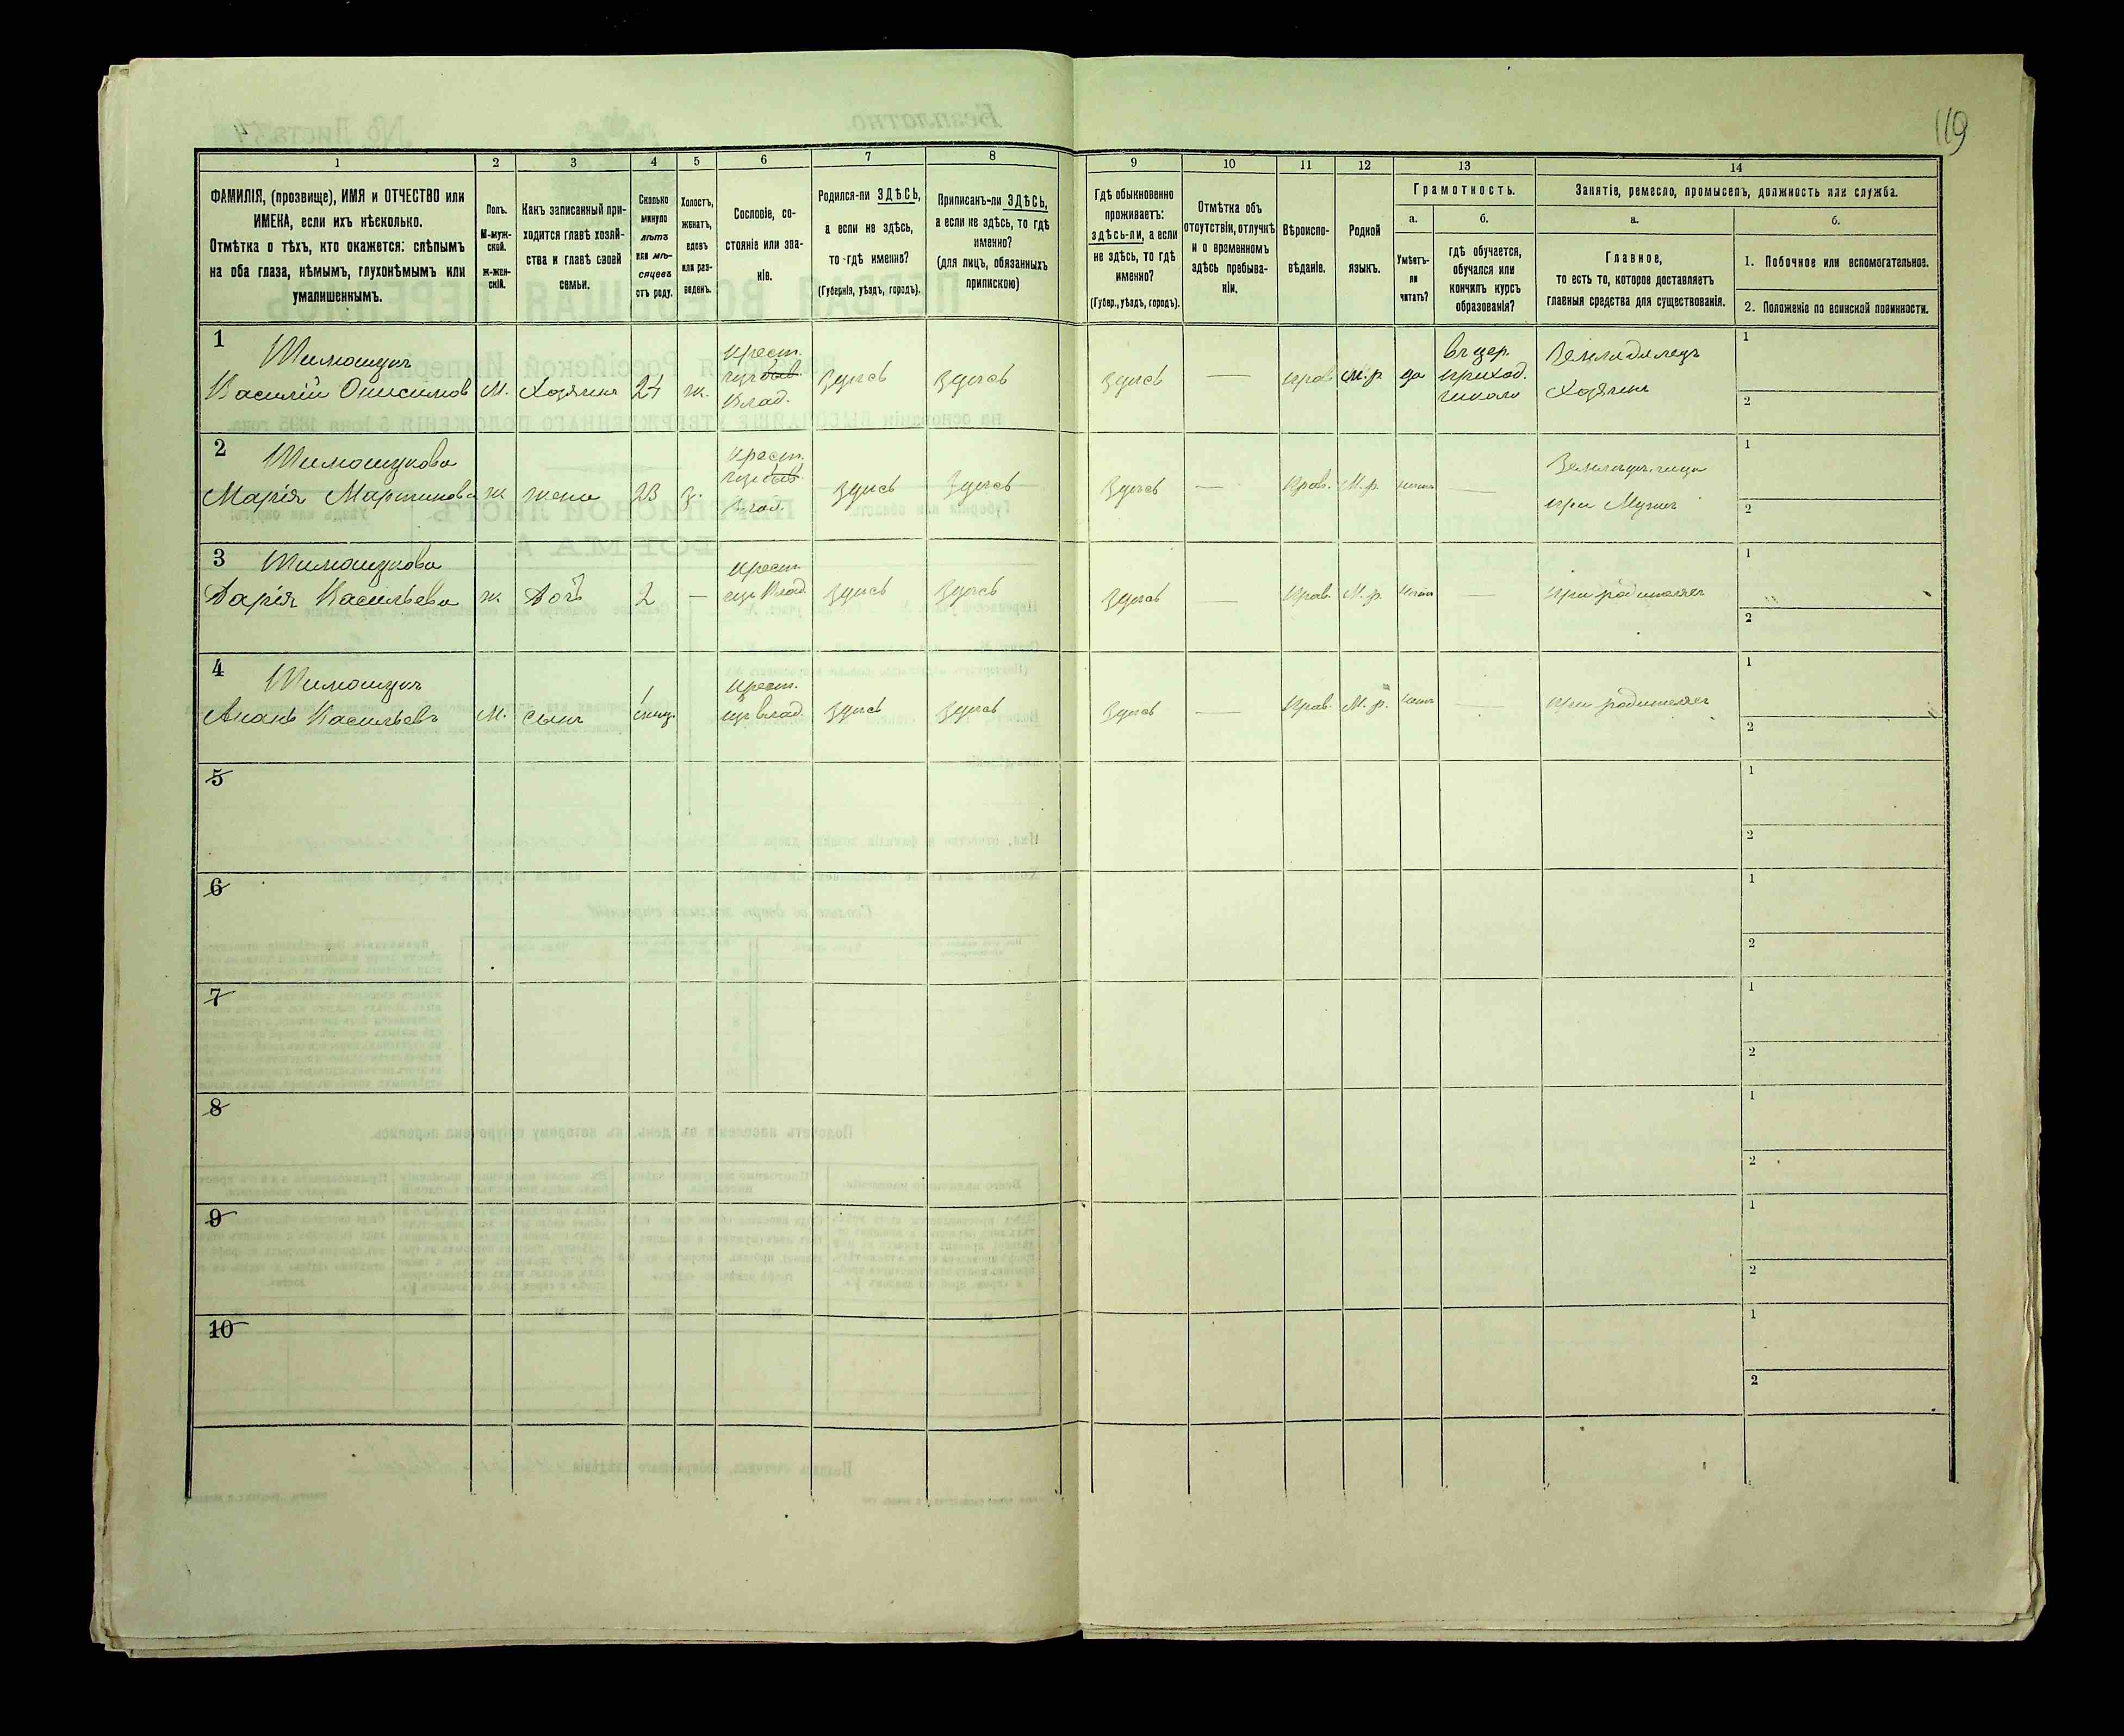 119
1 2 3 4 5 6 7 8 9 10 11 12 13 14
ФАМИЛІЯ, (прозвище), ИМЯ и ОТЧЕСТВО или
ИМЕНА, если ихъ нѣсколько.
Отмѣтка о тѣхъ, кто окажется: слѣпымъ
на оба глаза, нѣмымъ, глухонѣмымъ или
умалишеннымъ.
Полъ.
М-муж-
ской.
Ж-жен-
скій.
Какъ записанный при-
ходится главѣ хозяй-
ства и главѣ своей
семьи.
Сколько
минуло
лѣтъ
или мѣ-
сяцевъ
отъ роду.
Холостъ,
женатъ,
вдовъ
или раз-
веденъ.
Сословіе, со-
стояніе или зва-
ніе.
Родился-ли ЗДѢСЬ,
а если не здѣсь,
то-гдѣ именно?
(Губернія, уѣздъ, городъ).
Приписанъ-ли ЗДѢСЬ,
а если не здѣсь, то гдѣ
именно?
(для лицъ, обязанныхъ
припискою)
Гдѣ обыкновенно
проживаетъ:
здѣсь-ли, а если
не здѣсь, то гдѣ
именно?
(Губер., уѣздъ, городъ).
Отмѣтка объ
отсутствіи, отлучкѣ
и о временномъ
здѣсь пребыва-
ніи.
Вѣроиспо-
вѣданіе.
Родной
языкъ.
Грамотность.
а.
Умѣетъ-
ли
читать?
б.
гдѣ обучается,
обучался или
кончилъ курсъ
образованія?
Занятіе, ремесло, промыселъ, должность или служба.
а.
Главное,
то есть то, которое доставляетъ
главныя средства для существованія.
б.
1. Побочное или вспомогательное.
2. Положеніе по воинской повинности.
1
Василій Онисимов М. Хозяинъ 24 ж.
крест.
изъ быв.
влад.
здѣсь здѣсь здѣсь — прав. М. р. да
въ цер.
приход.
школѣ
Земледѣлецъ
Хозяинъ
1
2
2
Марія Мартинова ж жена 23 з.
крест.
изъ быв.
влад.
здѣсь здѣсь здѣсь — прав. М. р. нѣтъ —
при мужѣ
1
2
3
Дарія Васильева ж. Дочь 2 —
крест.
изъ влад.
здѣсь здѣсь здѣсь — прав. М. р. нѣтъ —
при родителяхъ
1
2
4
Васильевъ М. сынъ
крест.
изъ влад.
здѣсь здѣсь здѣсь — прав. М. р. нѣтъ —
при родителяхъ
1
2
5
1
2
6
1
2
7
1
2
8
1
2
9
1
2
10
1
2